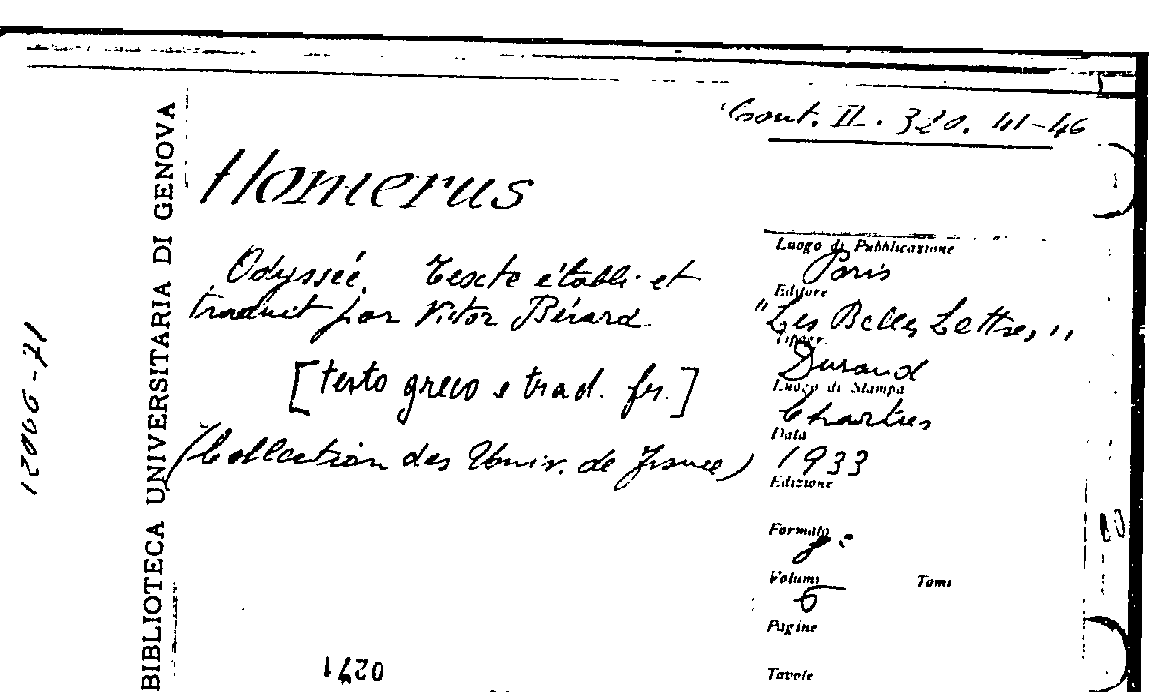 Cont. II. 320. 41-46
Homerus
Odyssée. Texte établi et
traduit par Victor Bérard
[testo greco e trad. fr.]
(Collection des Univ. de France)
Luogo di Pubblicazione
Paris
Editore
"Les Belles Lettres"
Tipogr.
Durand
Luogo di Stampa
Chartres
Data
1933
Edizione
Formato
8°
Volumi Tomi
Pagine
Tavole
BIBLIOTECA UNIVERSITARIA DI GENOVA
0271